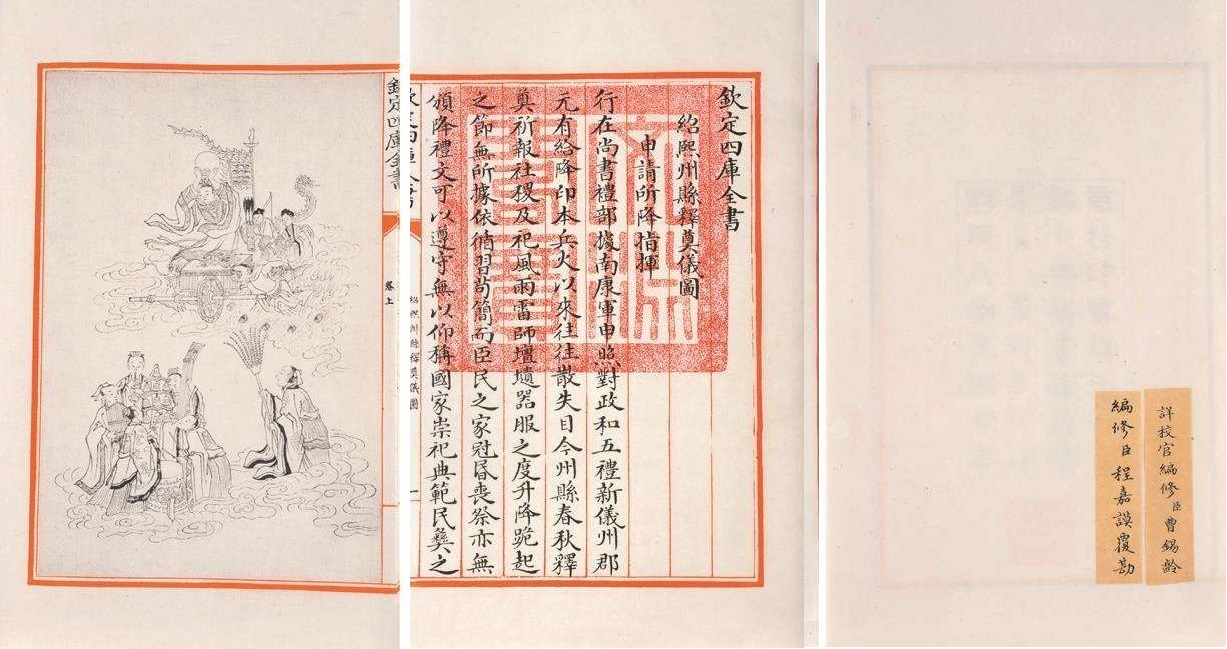 詳校官編修臣曹錫齡
編修臣程嘉謨覆勘
欽定四庫全書
紹熙州縣釋奠儀圖
申請所降指揮
行在尚書禮部據南康軍申照對政和五禮新儀州郡
元有給降印本兵火以來往往散失目今州縣春秋釋
奠祈報社稷及祀風雨雷師壇壝器服之度升降跪起
之節無所據依循習苟簡而臣民之家冠昏喪祭亦無
頒降禮文可以遵守無以仰稱國家崇祀典範民彝之
文淵閣寶
欽定四庫全書
紹熙州縣釋奠儀圖
一
欽定四庫全書
卷上